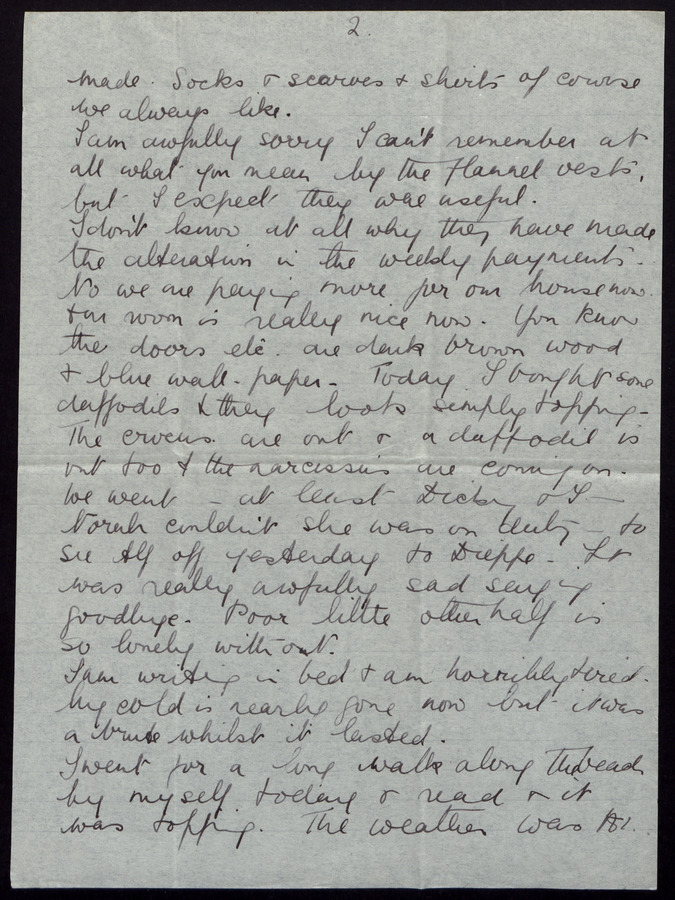 2.
made. Socks & scarves & shirts of course
we always like.
I am awfully sorry I can't remember at
all what you mean by the flannel vests,
but I expect they were useful.
I don't know at all why they have made
the alteration in the weekly payments.
No we are paying more for our house now.
& our room is really nice now. You know
the doors etc. are dark brown wood
& blue wall-paper. Today I bought some
daffodils & they look simply topping -
The crocus are out & a daffodil is
out too & the narcissus are coming on.
We went - at least Dicky & I -
Norah couldn't she was on duty - to
see Alf off yesterday to Dieppe. It
was really awfully sad saying
goodbye. Poor little other half is
so lonely without.
I am writing in bed & am horribly tired.
My cold is nearly gone now but it was
a brute whilst it lasted.
I went for a long walk along the beach
by myself today & read & it
was topping. The weather was A1.